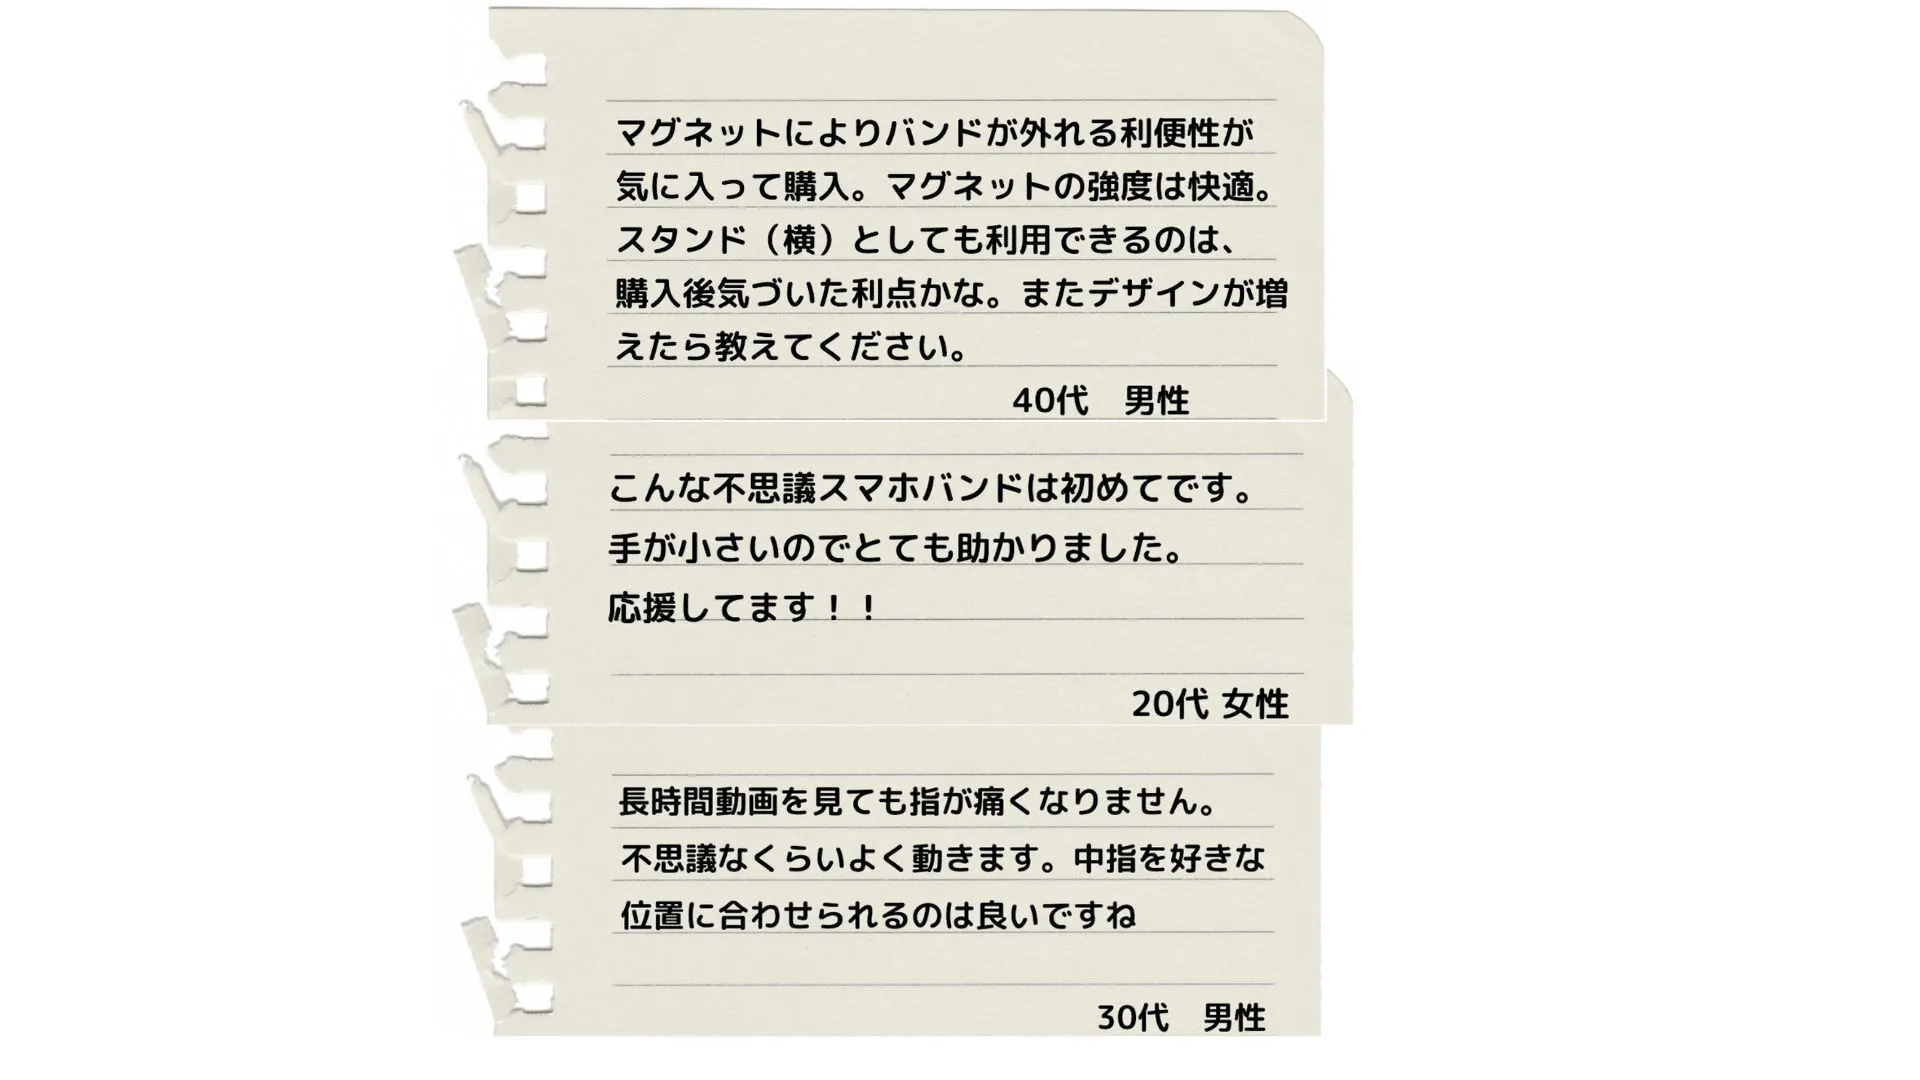 マグネットによりバンドが外れる利便性が
気に入って購入。マグネットの強度は快適。
スタンド（横）としても利用できるのは、
購入後気づいた利点かな。またデザインが増
えたら教えてください。
40代　男性
こんな不思議スマホバンドは初めてです。
手が小さいのでとても助かりました。
応援してます！！
20代 女性
長時間動画を見ても指が痛くなりません。
不思議なくらいよく動きます。中指を好きな
位置に合わせられるのは良いですね
30代　男性